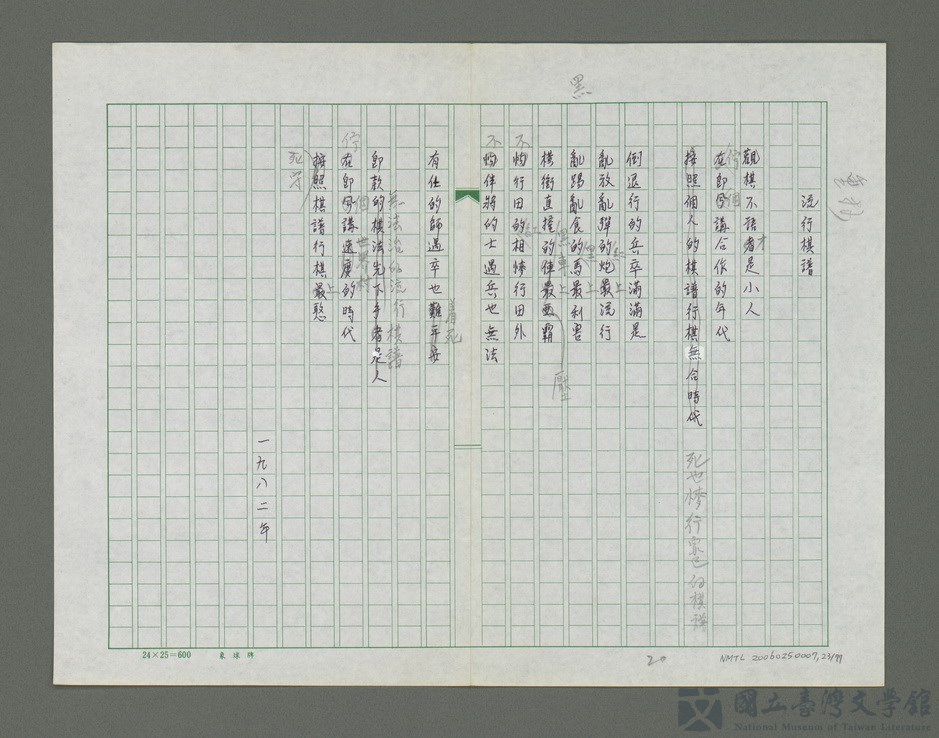 流行棋譜
觀棋不語者是小人
才
在即個講合作的年代
佇
按照個人的棋譜行棋無合時代
死也
行家己的棋譜
倒退行的兵卒滿滿是
亂放亂彈的炮最流行
上
亂踢亂食的馬最利害
上
黑
橫衝直撞的俥最惡霸
黑車
上
壓
不
行田的相
行田外
不
伴將的士遇兵也無法
有仕的帥遇卒也難平安
死
無法治的流行棋譜
即款的棋法先下手者是人
在即個講速度的時代
佇
世界
按照棋譜行棋最憨
上
死守
一九八二年
24×25=600
20
NMTL 20060250007,23/77
國立臺灣文學館
National Museum of Taiwan Literature